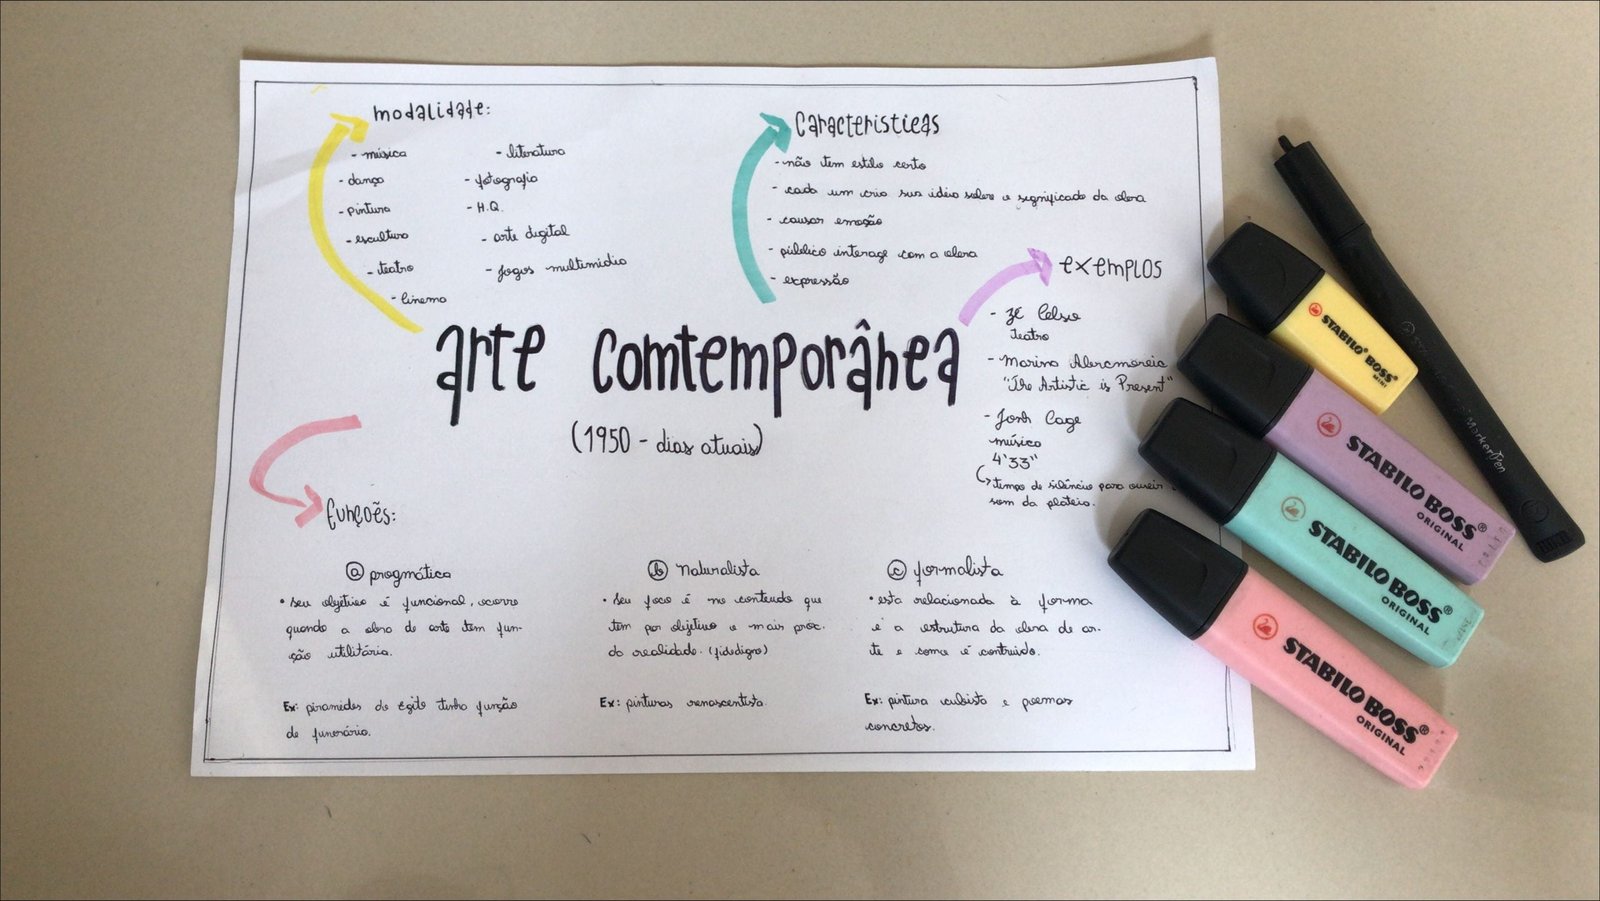 modalidade:
- música
- dança
- pintura
- escultura
- teatro
- cinema
- literatura
- fotografia
- H.Q.
- arte digital
- Jogos multimídia
Características
- não tem estilo certo
- cada um cria sua idéia sobre o significado da obra
- causar emoção
- público interage com a obra
- expressão
exemplos
- Zé Celso
teatro
- Marina Abramoreia
"The Artistic is Present"
- Jonh Cage
músico
4'33"
tempo de silêncio para ouvir
som da plateia.
arte comtemporânea
(1950 - dias atuais)
Funções:
a pragmática
• seu objetivo é funcional, ocorre
quando a obra de arte tem fun-
ção utilitária.
Ex: piramides do egito tinha função
de funerária.
b Naturalista
• Seu foco é no conteudo que
tem por objetivo o mais próx.
da realidade. (fidedigno)
Ex: pinturas renascentista.
c formalista
• esta relacionada à forma
e a estrutura da obra de ar-
te e como é contruida.
Ex: pintura cubista e poemas
concretos.
STABILO BOSS®
MINI
STABILO BOSS®
ORIGINAL
STABILO BOSS®
ORIGINAL
STABILO BOSS®
ORIGINAL
MarkerPen